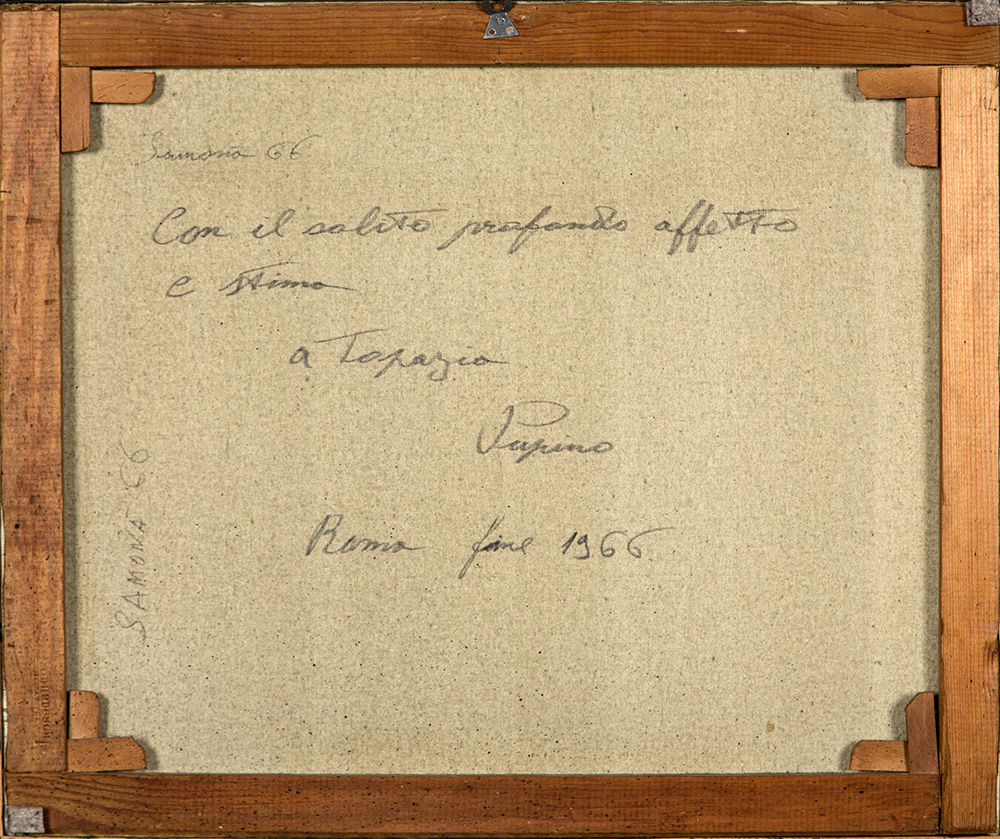 Samonà 66
Con il solito profondo affetto
e stima
a Topazia
Pupino
Roma fine 1966
SAMONÀ 66